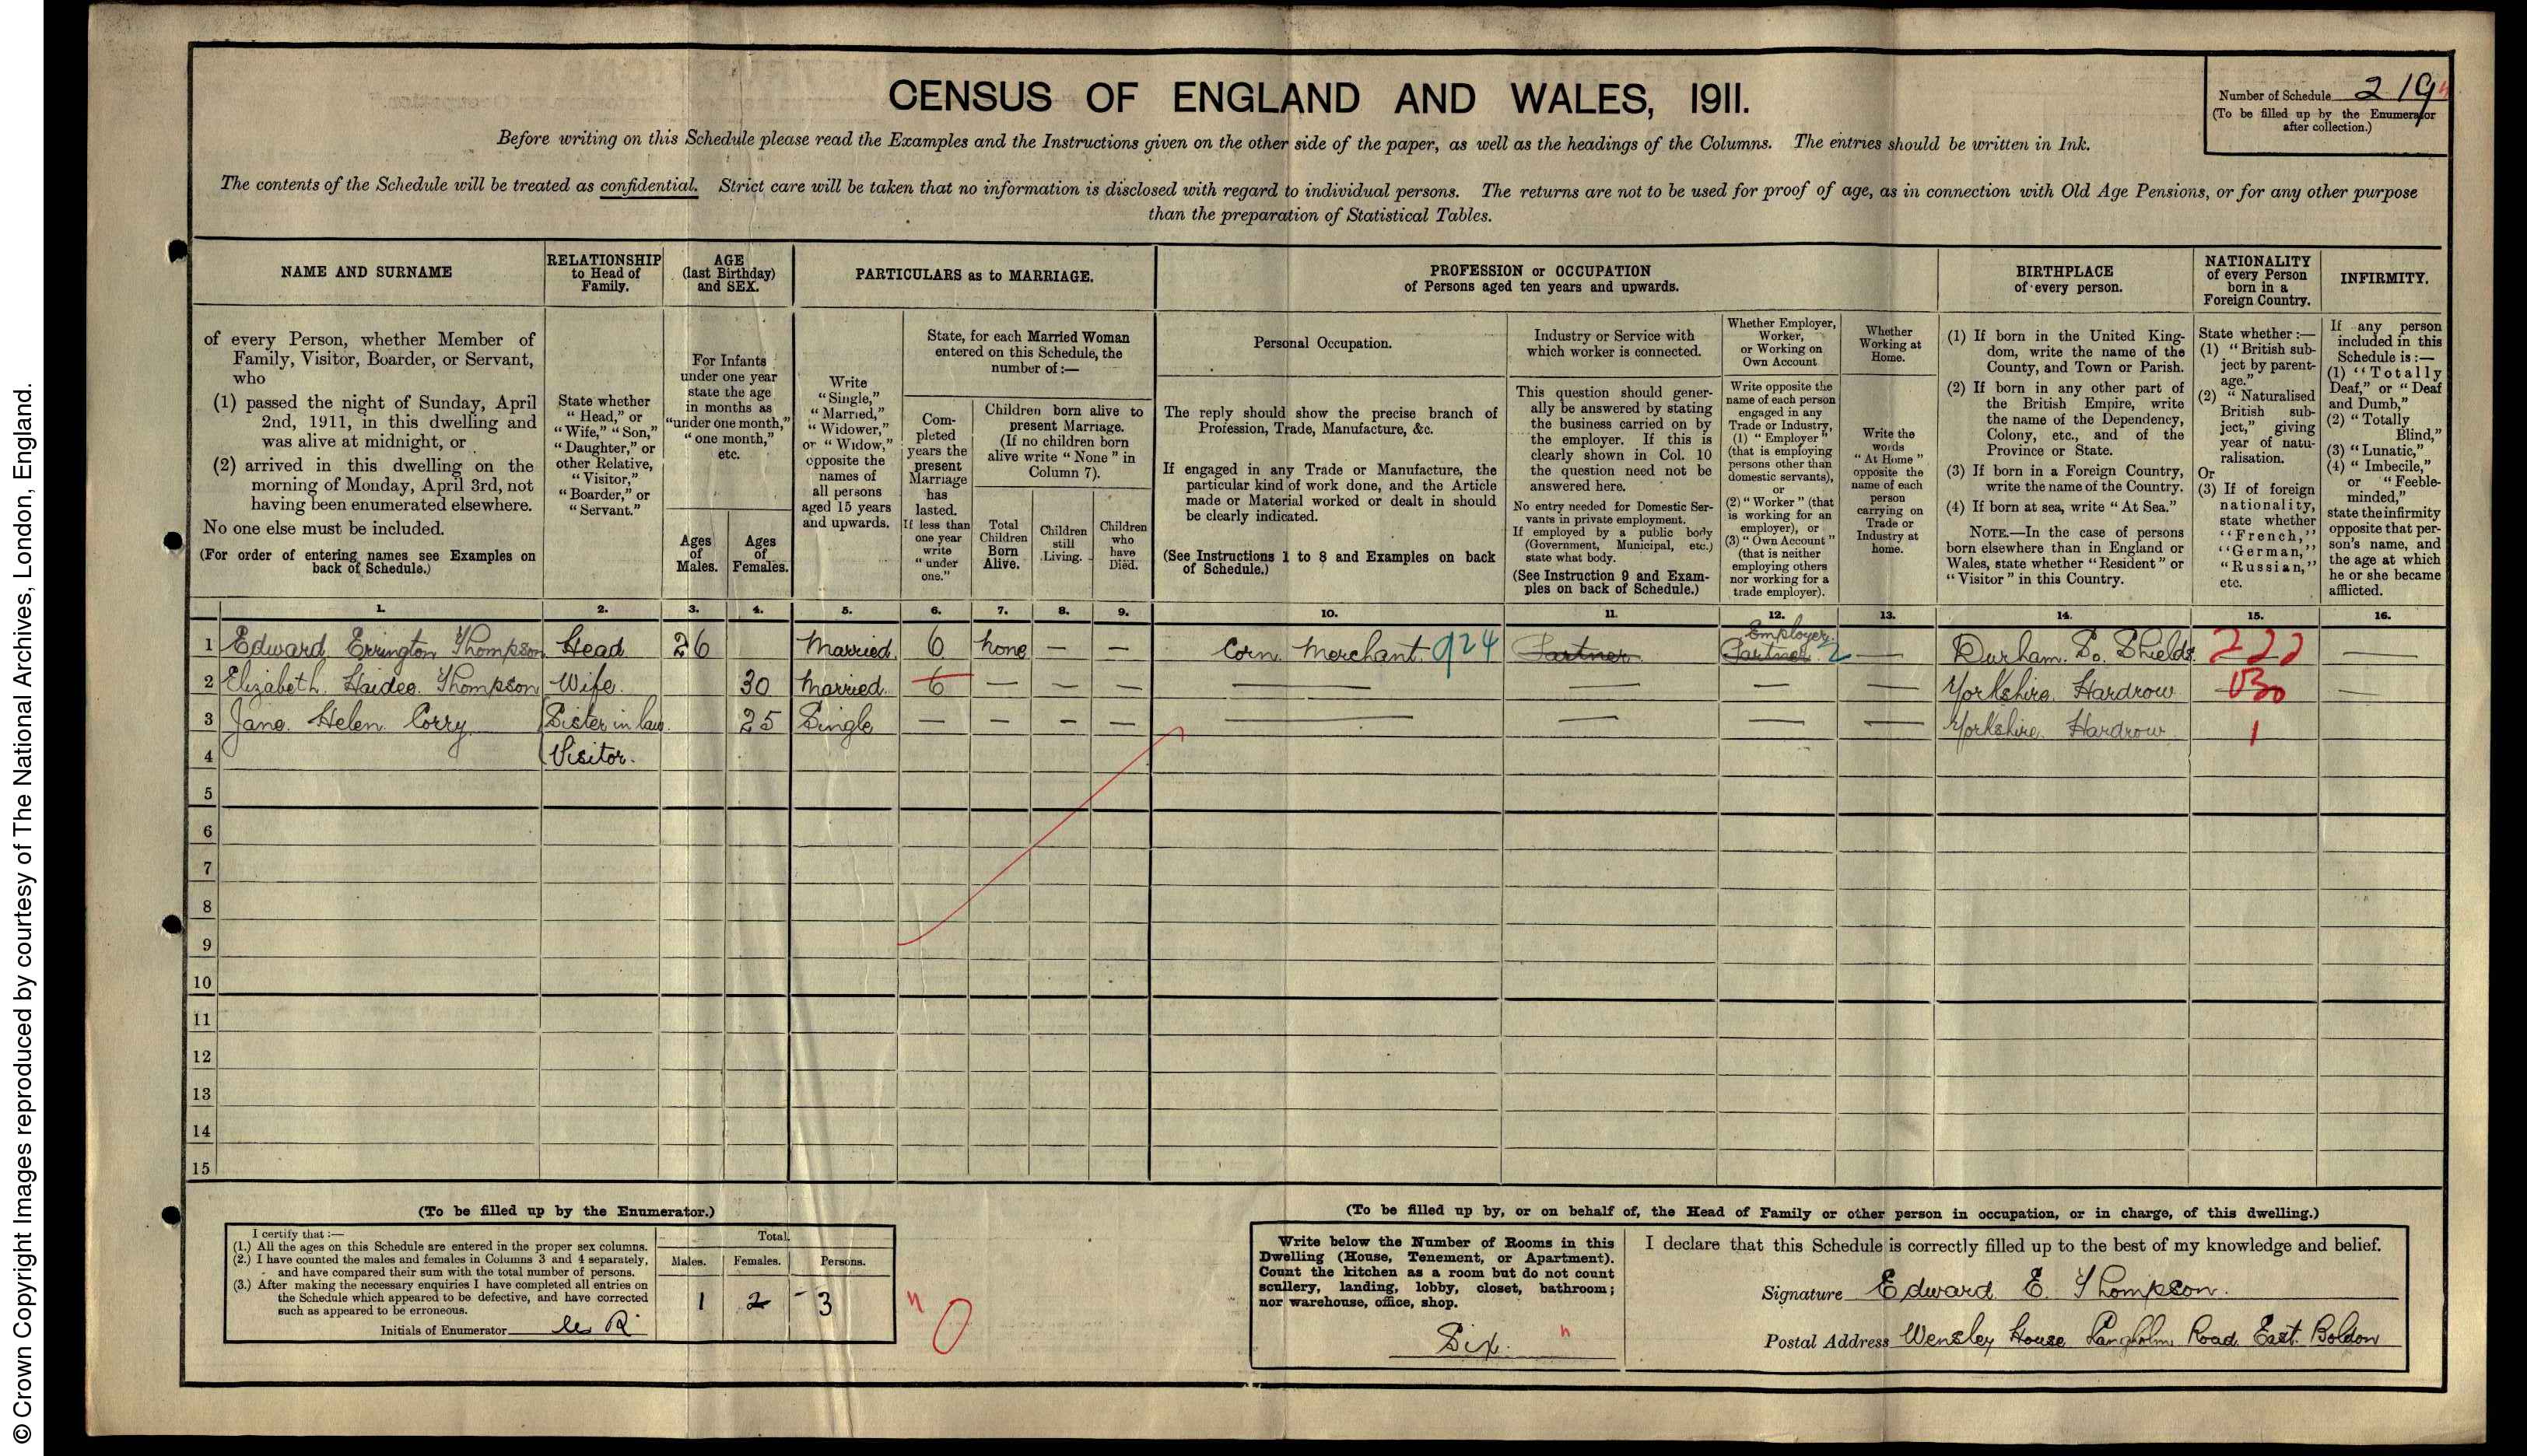 © Crown Copyright Images reproduced by courtesy of The National Archives, London, England.
CENSUS OF ENGLAND AND WALES, 1911.
Number of Schedule 219
(To be filled up by the Enumerator
after collection.)
Before writing on this Schedule please read the Examples and the Instructions given on the other side of the paper, as well as the headings of the Columns. The entries should be written in Ink.
The contents of the Schedule will be treated as confidential. Strict care will be taken that no information is disclosed with regard to individual persons. The returns are not to be used for proof of age, as in connection with Old Age Pensions, or for any other purpose
than the preparation of Statistical Tables.
NAME AND SURNAME
of every Person, whether Member of
Family, Visitor, Boarder, or Servant,
who
(1) passed the night of Sunday, April
2nd, 1911, in this dwelling and
was alive at midnight, or
(2) arrived in this dwelling on the
morning of Monday, April 3rd, not
having been enumerated elsewhere.
No one else must be included.
(For order of entering names see Examples on
back of Schedule.)
RELATIONSHIP
to Head of
Family.
State whether
"Head," or
"Wife," "Son,"
"Daughter," or
other Relative,
"Visitor,"
"Boarder," or
"Servant."
AGE
(last Birthday)
and SEX.
For Infants
under one year
state the age
in months as
"under one month,"
"one month,"
etc.
Ages
of
Males.
Ages
of
Females.
PARTICULARS as to MARRIAGE.
Write
"Single,"
"Married,"
"Widower,"
or "Widow,"
opposite the
names of
all persons
aged 15 years
and upwards.
State, for each Married Woman
entered on this Schedule, the
number of:—
Com-
pleted
years the
present
Marriage
has
lasted.
If less than
one year
write
"under
one."
Children born alive to
present Marriage.
(If no children born
alive write "None" in
Column 7).
Total
Children
Born
Alive.
Children
still
Living.
Children
who
have
Died.
PROFESSION or OCCUPATION
of Persons aged ten years and upwards.
Personal Occupation.
The reply should show the precise branch of
Profession, Trade, Manufacture, &c.
If engaged in any Trade or Manufacture, the
particular kind of work done, and the Article
made or Material worked or dealt in should
be clearly indicated.
(See Instructions 1 to 8 and Examples on back
of Schedule.)
Industry or Service with
which worker is connected.
This question should gener-
ally be answered by stating
the business carried on by
the employer. If this is
clearly shown in Col. 10
the question need not be
answered here.
No entry needed for Domestic Ser-
vants in private employment.
If employed by a public body
(Government, Municipal, etc.)
state what body.
(See Instruction 9 and Exam-
ples on back of Schedule.)
Whether Employer,
Worker,
or Working on
Own Account
Write opposite the
name of each person
engaged in any
Trade or Industry,
(1) "Employer"
(that is employing
persons other than
domestic servants),
or
(2) "Worker" (that
is working for an
employer), or
(3) "Own Account"
(that is neither
employing others
nor working for a
trade employer).
Whether
Working at
Home.
Write the
words
"At Home"
opposite the
name of each
person
carrying on
Trade or
Industry at
home.
BIRTHPLACE
of every person.
(1) If born in the United King-
dom, write the name of the
County, and Town or Parish.
(2) If born in any other part of
the British Empire, write
the name of the Dependency,
Colony, etc., and of the
Province or State.
(3) If born in a Foreign Country,
write the name of the Country.
(4) If born at sea, write "At Sea."
NOTE.—In the case of persons
born elsewhere than in England or
Wales, state whether "Resident" or
"Visitor" in this Country.
NATIONALITY
of every Person
born in a
Foreign Country.
State whether:—
(1) "British sub-
ject by parent-
age."
(2) "Naturalised
British sub-
ject," giving
year of natu-
ralisation.
Or
(3) If of foreign
nationality,
state whether
"French,"
"German,"
"Russian,"
etc.
INFIRMITY.
If any person
included in this
Schedule is:—
(1) "Totally
Deaf," or "Deaf
and Dumb,"
(2) "Totally
Blind,"
(3) "Lunatic,"
(4) "Imbecile,"
or "Feeble-
minded,"
state the infirmity
opposite that per-
son's name, and
the age at which
he or she became
afflicted.
1. 2. 3. 4. 5. 6. 7. 8. 9. 10. 11. 12. 13. 14. 15. 16.
Employer
1 Edward Errington Thompson Head 26 Married 6 none — — Corn Merchant 924 Partner Partner 2 — Durham So. Shields 222 —
2 Elizabeth Haidee Thompson Wife 30 Married 6 — — — — — — — Yorkshire Hardrow 030 —
3 Jane Helen Corry Sister in law 25 Single — — — — — — — — Yorkshire Hardrow 1
4 Visitor.
5
6
7
8
9
10
11
12
13
14
15
(To be filled up by the Enumerator.)
I certify that:—
(1.) All the ages on this Schedule are entered in the proper sex columns.
(2.) I have counted the males and females in Columns 3 and 4 separately,
and have compared their sum with the total number of persons.
(3.) After making the necessary enquiries I have completed all entries on
the Schedule which appeared to be defective, and have corrected
such as appeared to be erroneous.
Initials of Enumerator
Total.
Males. Females. Persons.
1 2 3
0
(To be filled up by, or on behalf of, the Head of Family or other person in occupation, or in charge, of this dwelling.)
Write below the Number of Rooms in this
Dwelling (House, Tenement, or Apartment).
Count the kitchen as a room but do not count
scullery, landing, lobby, closet, bathroom;
nor warehouse, office, shop.
Six.
I declare that this Schedule is correctly filled up to the best of my knowledge and belief.
Signature Edward E. Thompson.
Postal Address Wensley House Langholm Road East Boldon